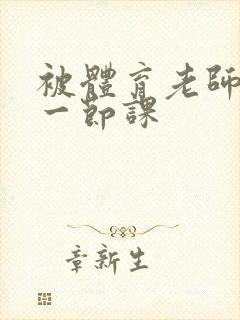 被體育老師
一節課
章新生